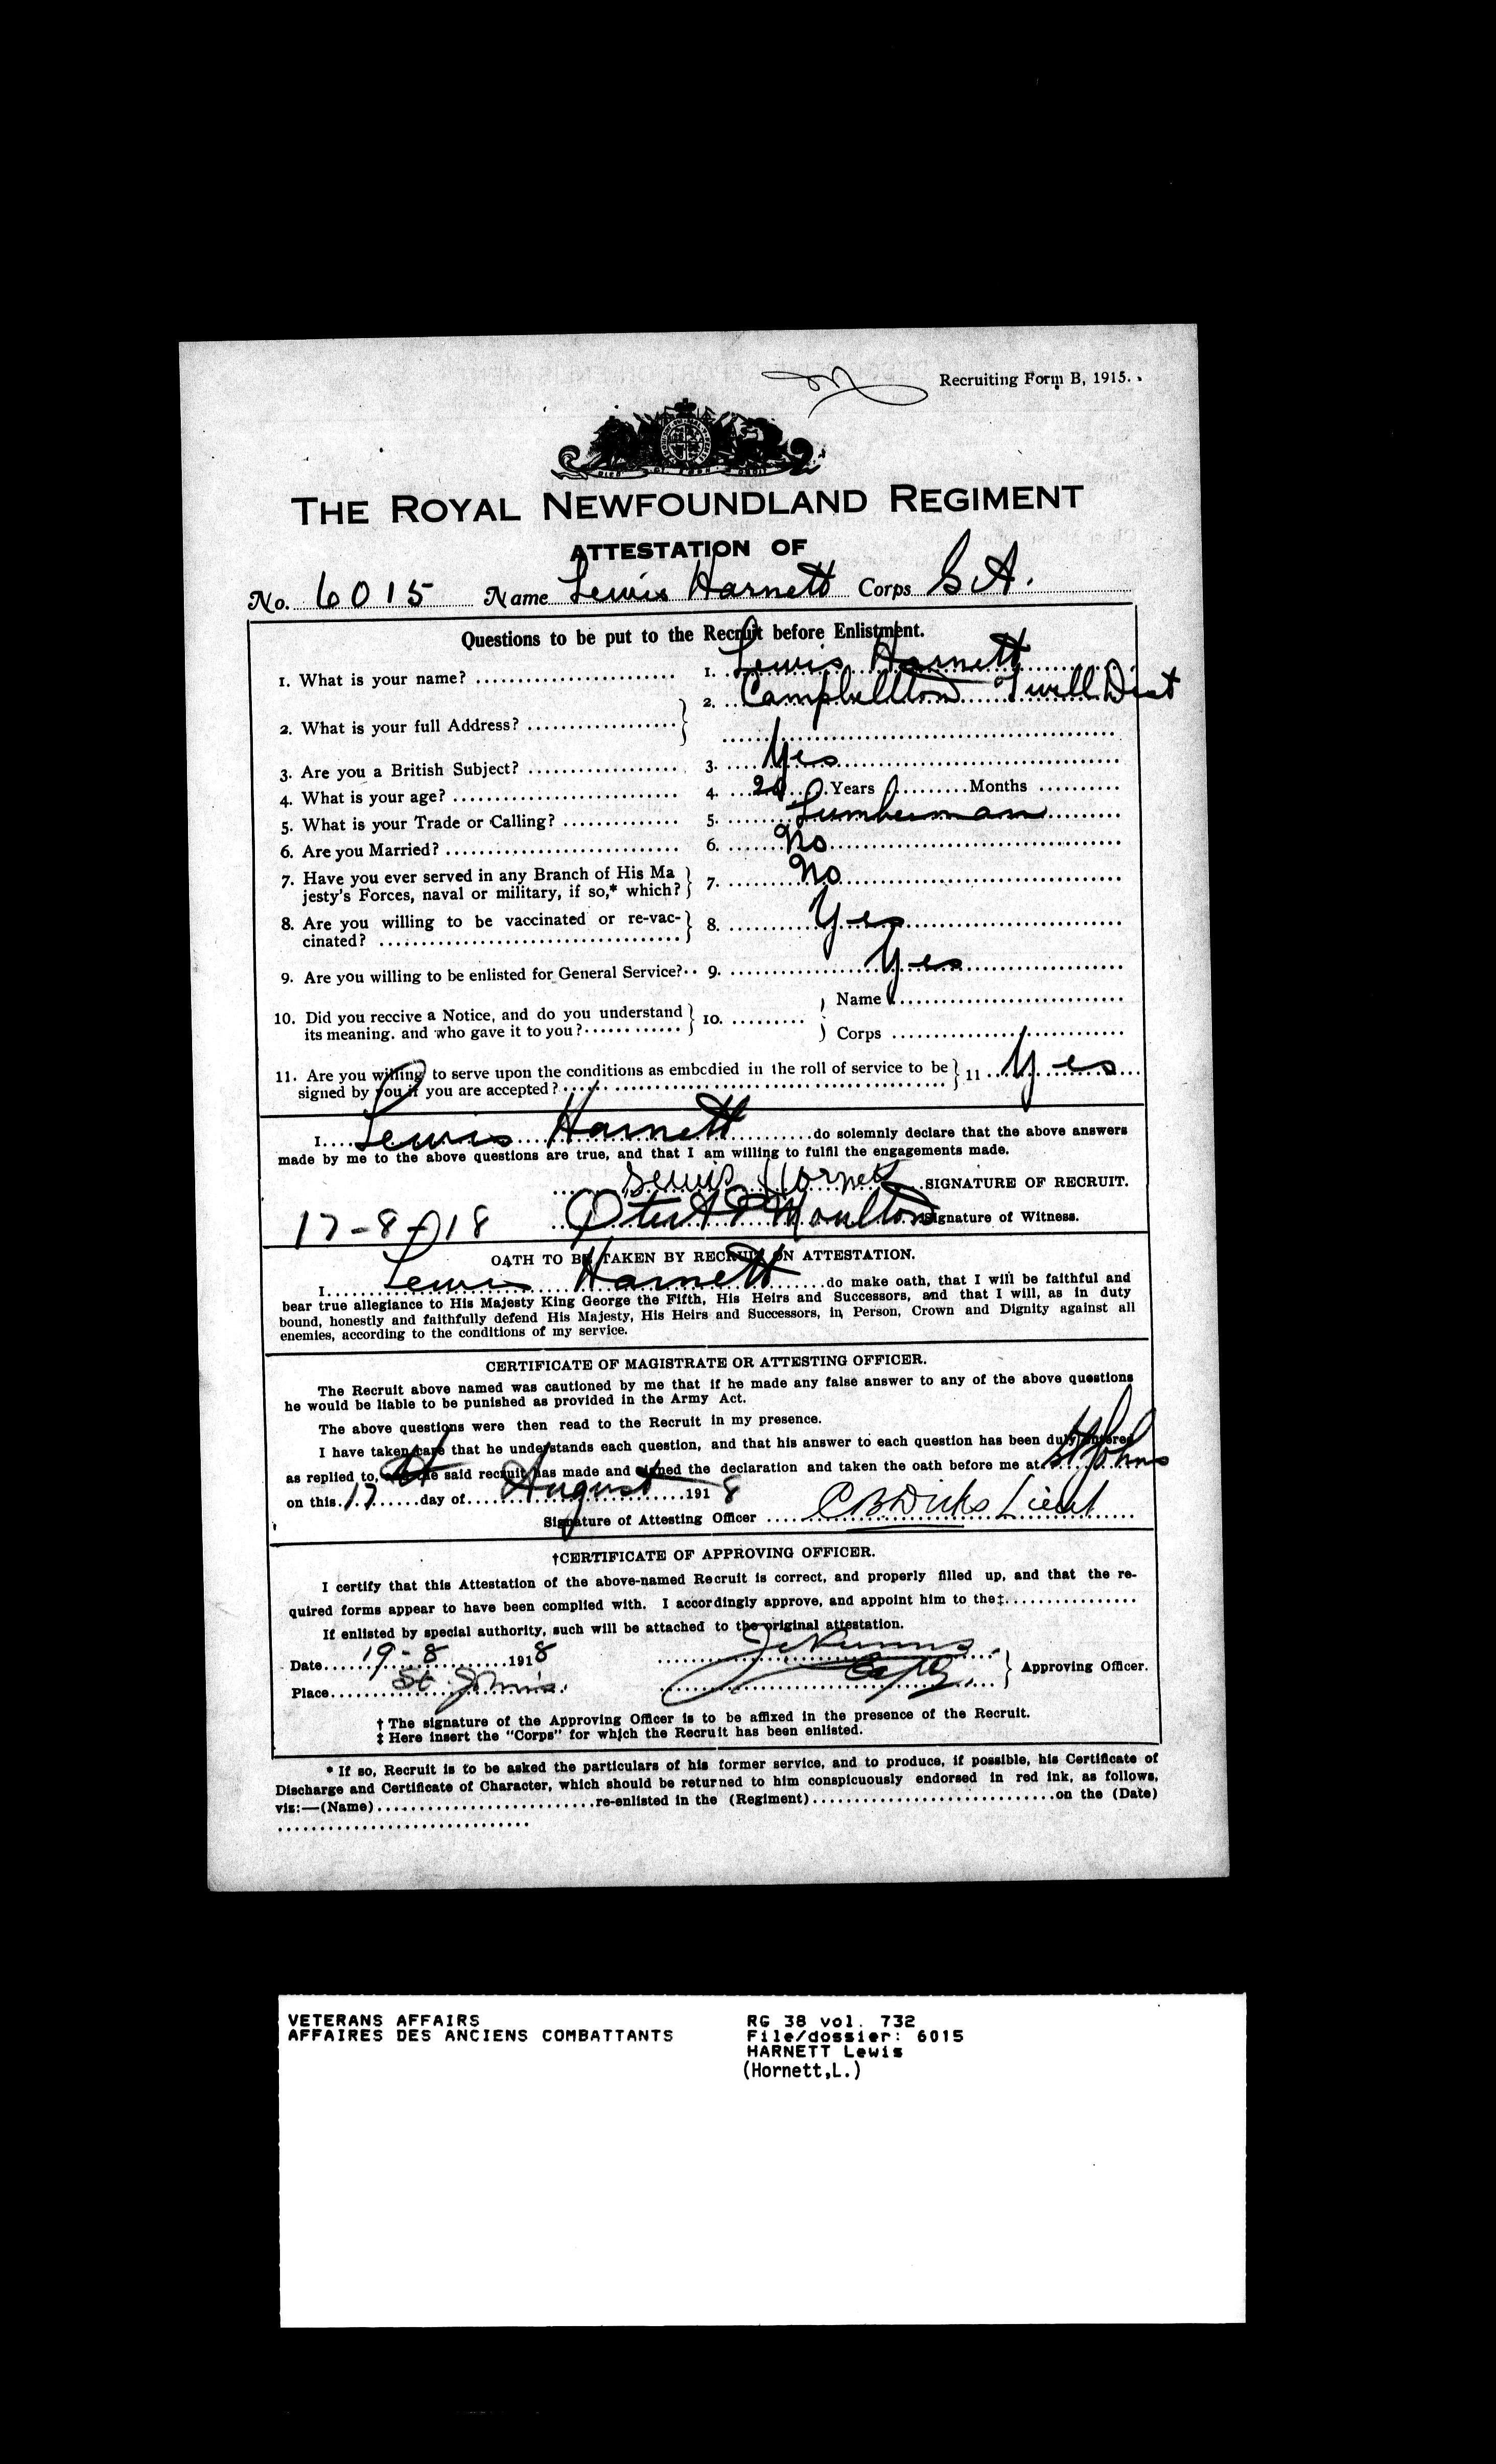 Recruiting Form B, 1915.
THE ROYAL NEWFOUNDLAND REGIMENT
ATTESTATION OF
No. 6015 Name Lewis Harnett Corps
Questions to be put to the Recruit before Enlistment.
1. What is your name? 1. Lewis Harnett
2. What is your full Address? 2. Campbellton Twill Dist
3. Are you a British Subject? 3. Yes
4. What is your age? 4. Years Months
5. What is your Trade or Calling? 5. Lumberman
6. Are you Married? 6. No
7. Have you ever served in any Branch of His Ma
jesty's Forces, naval or military, if so,* which? 7. No
8. Are you willing to be vaccinated or re-vac-
cinated? 8. Yes
9. Are you willing to be enlisted for General Service? 9. Yes
10. Did you receive a Notice, and do you understand
its meaning. and who gave it to you? 10. Name
Corps
11. Are you willing to serve upon the conditions as embodied in the roll of service to be
signed by you if you are accepted? 11 Yes
I Lewis Harnett do solemnly declare that the above answers
made by me to the above questions are true, and that I am willing to fulfil the engagements made.
Lewis Hornett SIGNATURE OF RECRUIT.
17-8-18 Moulton Signature of Witness.
OATH TO BE TAKEN BY RECRUIT ON ATTESTATION.
I Lewis Harnett do make oath, that I will be faithful and
bear true allegiance to His Majesty King George the Fifth, His Heirs and Successors, and that I will, as in duty
bound, honestly and faithfully defend His Majesty, His Heirs and Successors, in Person, Crown and Dignity against all
enemies, according to the conditions of my service.
CERTIFICATE OF MAGISTRATE OR ATTESTING OFFICER.
The Recruit above named was cautioned by me that if he made any false answer to any of the above questions
he would be liable to be punished as provided in the Army Act.
The above questions were then read to the Recruit in my presence.
I have taken care that he understands each question, and that his answer to each question has been duly entered
as replied to, and the said recruit has made and signed the declaration and taken the oath before me at St Johns
on this 17 day of August 1918
Signature of Attesting Officer C B Dicks Lieut
†CERTIFICATE OF APPROVING OFFICER.
I certify that this Attestation of the above-named Recruit is correct, and properly filled up, and that the re-
quired forms appear to have been complied with. I accordingly approve, and appoint him to the‡
If enlisted by special authority, such will be attached to the original attestation.
Date 19-8 1918
Place St John's. Capt. Approving Officer.
† The signature of the Approving Officer is to be affixed in the presence of the Recruit.
‡ Here insert the "Corps" for which the Recruit has been enlisted.
* If so, Recruit is to be asked the particulars of his former service, and to produce, if possible, his Certificate of
Discharge and Certificate of Character, which should be returned to him conspicuously endorsed in red ink, as follows,
viz:—(Name) re-enlisted in the (Regiment) on the (Date)
VETERANS AFFAIRS
AFFAIRES DES ANCIENS COMBATTANTS
RG 38 vol. 732
File/dossier: 6015
HARNETT Lewis
(Hornett,L.)